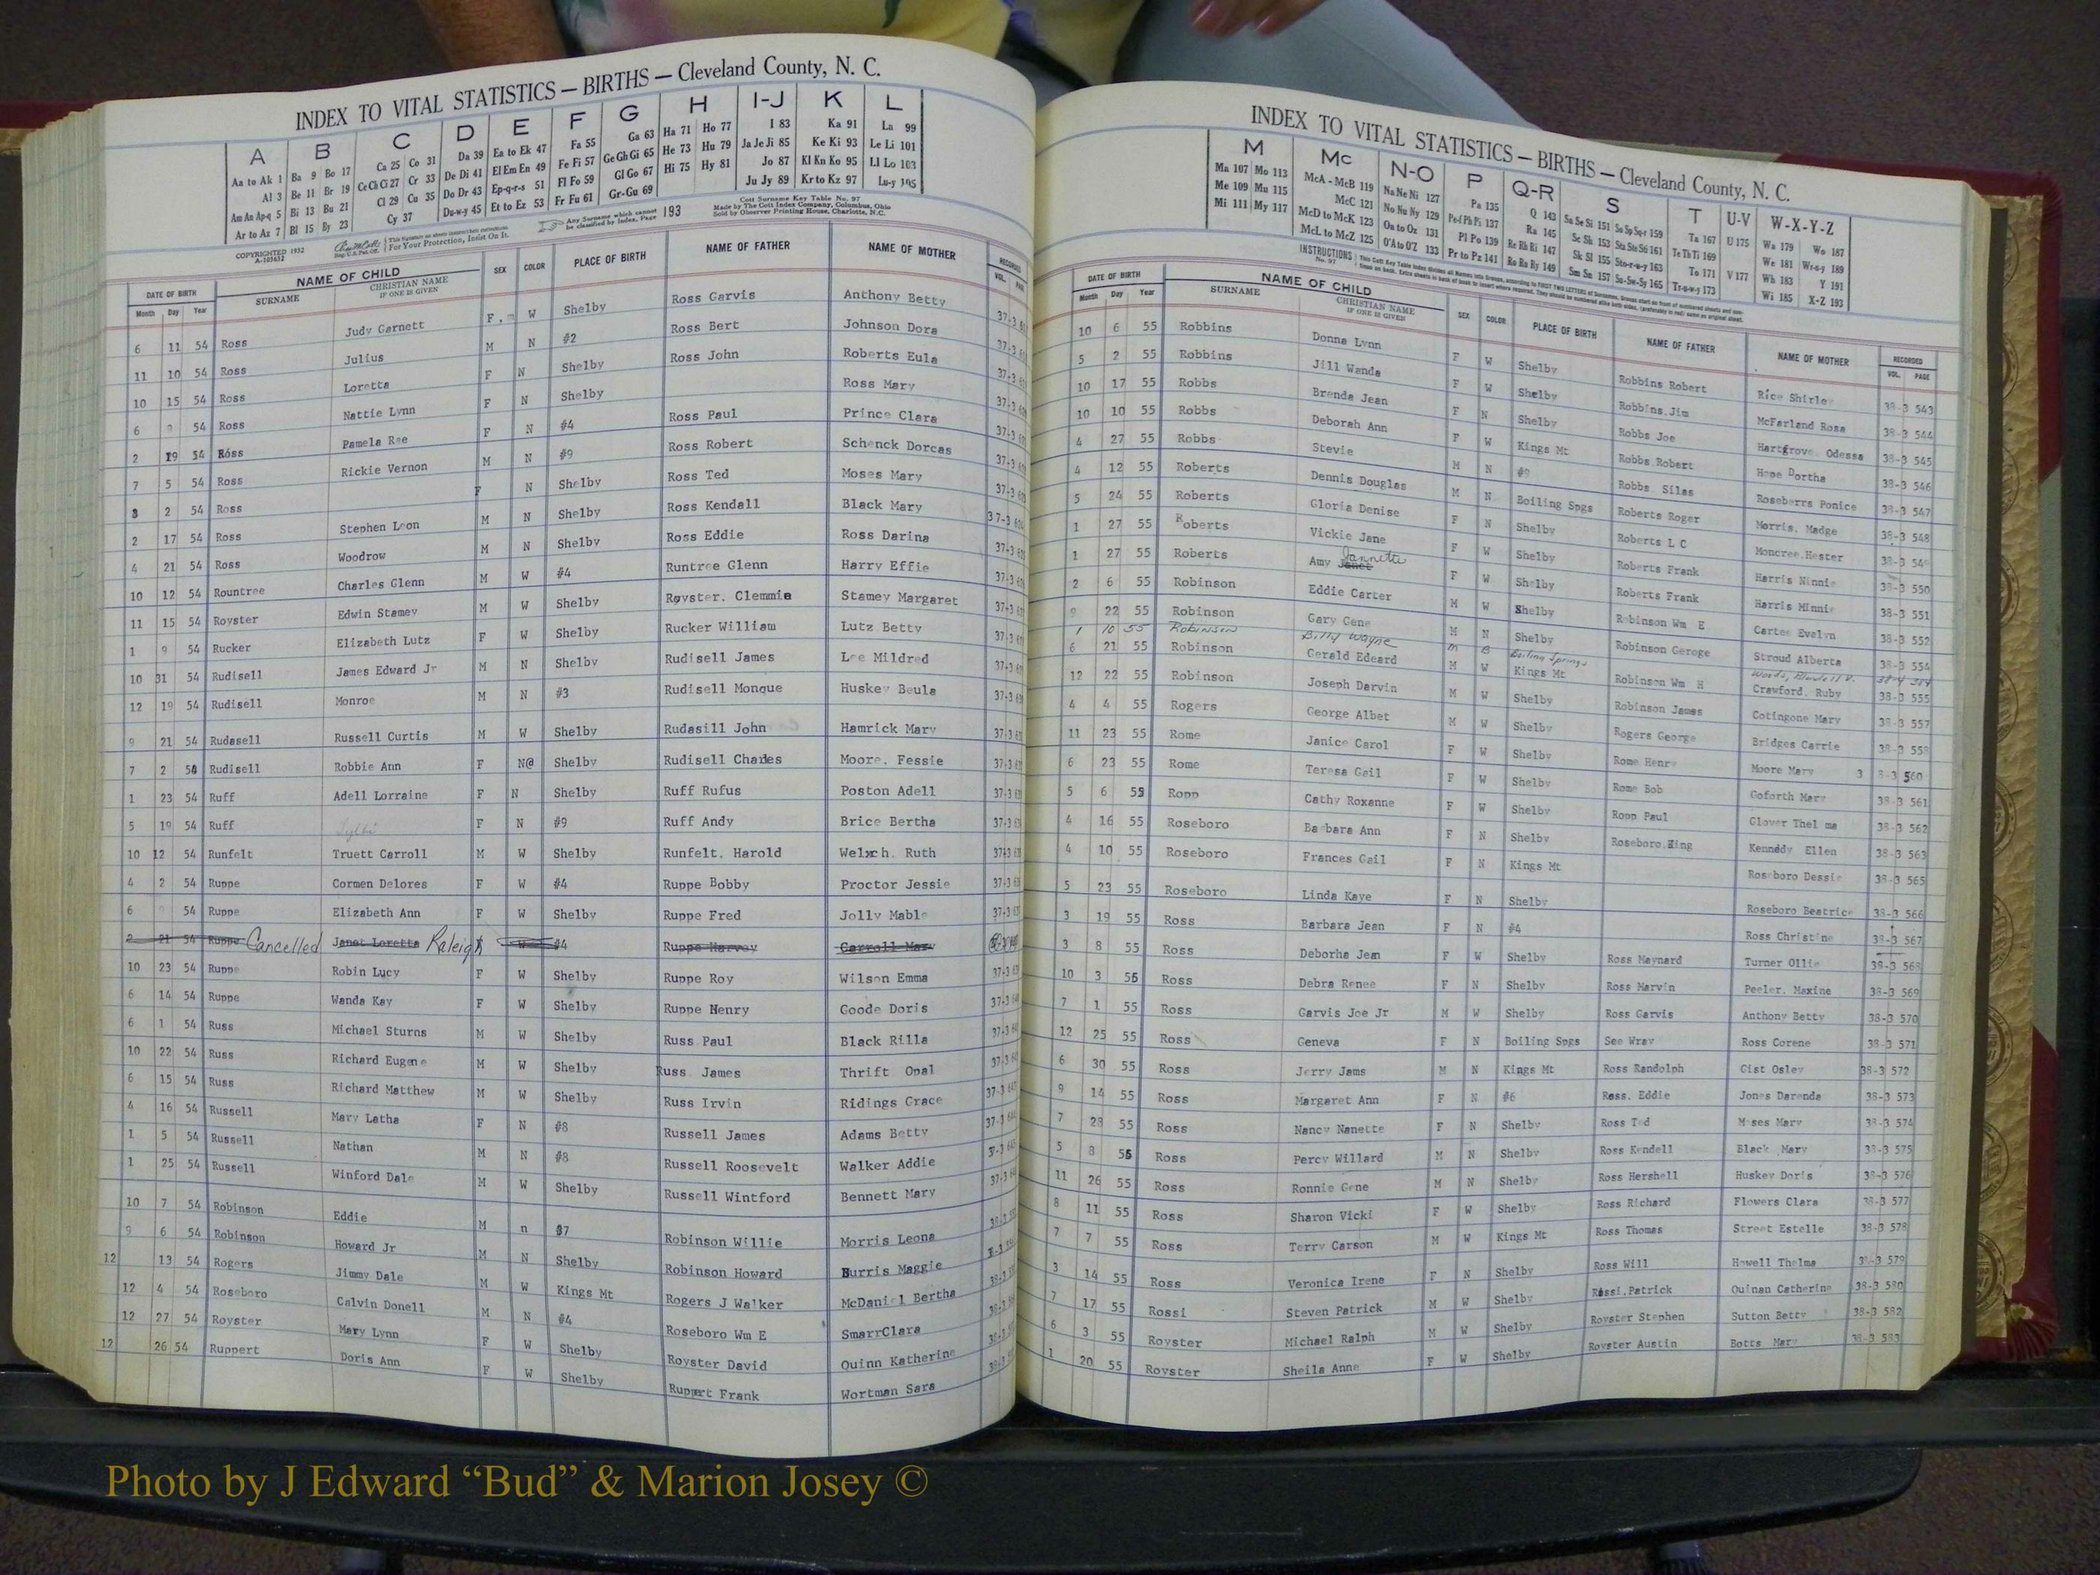 INDEX TO VITAL STATISTICS — BIRTHS — Cleveland County, N. C.
A B C D E F G H I-J K L
Aa to Ak 1 Ba 9 Bo 17 Ca 25 Co 31 Da 39 Ea to Ek 47 Fa 55 Ga 63 Ha 71 Ho 77 I 83 Ka 91 La 99
Al 3 Be 11 Br 19 Ce Ch Ci 27 Cr 33 De Di 41 El Em En 49 Fe Fi 57 Ge Gh Gi 65 He 73 Hu 79 Ja Je Ji 85 Ke Ki 93 Le Li 101
Am An Ap-q 5 Bi 13 Bu 21 Cl 29 Cu 35 Do Dr 43 Ep-q-r-s 51 Fl Fo 59 Gl Go 67 Hi 75 Hy 81 Jo 87 Kl Kn Ko 95 Ll Lo 103
Ar to Az 7 Bl 15 By 23 Cy 37 Du-w-y 45 Et to Ez 53 Fr Fu 61 Gr-Gu 69 Ju Jy 89 Kr to Kz 97 Lu-y 105
COPYRIGHTED 1932
A-103632
For Your Protection, Insist On It.
Any Surname which cannot be classified by Index, Page 193
Cott Surname Key Table No. 97
Made by The Cott Index Company, Columbus, Ohio
Sold by Observer Printing House, Charlotte, N.C.
DATE OF BIRTH NAME OF CHILD SEX COLOR PLACE OF BIRTH NAME OF FATHER NAME OF MOTHER RECORDED
Month Day Year SURNAME CHRISTIAN NAME IF ONE IS GIVEN VOL. PAGE
6 11 54 Ross Judy Garnett F.m W Shelby Ross Garvis Anthony Betty 37-3
11 10 54 Ross Julius M N #2 Ross Bert Johnson Dora 37-3
10 15 54 Ross Loretta F N Shelby Ross John Roberts Eula 37-3
6 9 54 Ross Nattie Lynn F N Shelby Ross Mary 37-3
2 19 54 Ross Pamela Rae F N #4 Ross Paul Prince Clara 37-3
7 5 54 Ross Rickie Vernon M N #9 Ross Robert Schenck Dorcas 37-3
3 2 54 Ross F N Shelby Ross Ted Moses Mary 37-3
2 17 54 Ross Stephen Leon M N Shelby Ross Kendall Black Mary 37-3
4 21 54 Ross Woodrow M N Shelby Ross Eddie Ross Darina 37-3
10 12 54 Rountree Charles Glenn M W #4 Runtree Glenn Harry Effie 37-3
11 15 54 Royster Edwin Stamey M W Shelby Royster. Clemmie Stamey Margaret 37-3
1 9 54 Rucker Elizabeth Lutz F W Shelby Rucker William Lutz Betty 37-3
10 31 54 Rudisell James Edward Jr M N Shelby Rudisell James Lee Mildred 37-3
12 19 54 Rudisell Monroe M N #3 Rudisell Monque Huskey Beula 37-3
9 21 54 Rudasell Russell Curtis M W Shelby Rudasill John Hamrick Mary 37-3
7 2 54 Rudisell Robbie Ann F N@ Shelby Rudisell Charles Moore. Fessie 37-3
1 23 54 Ruff Adell Lorraine F N Shelby Ruff Rufus Poston Adell 37-3
5 19 54 Ruff F N #9 Ruff Andy Brice Bertha 37-3
10 12 54 Runfelt Truett Carroll M W Shelby Runfelt. Harold Welxch. Ruth 37-3
4 2 54 Ruppe Cormen Delores F W #4 Ruppe Bobby Proctor Jessie 37-3
6 54 Ruppe Elizabeth Ann F W Shelby Ruppe Fred Jolly Mable 37-3
2 21 54 Ruppe Cancelled Janet Loretta Raleigh W #4 Ruppe Harvey Carroll Mary
10 23 54 Ruppe Robin Lucy F W Shelby Ruppe Roy Wilson Emma 37-3
6 14 54 Ruppe Wanda Kay F W Shelby Ruppe Henry Goode Doris 37-3
6 1 54 Russ Michael Sturns M W Shelby Russ Paul Black Rilla 37-3
10 22 54 Russ Richard Eugene M W Shelby Russ James Thrift Opal 37-3
6 15 54 Russ Richard Matthew M W Shelby Russ Irvin Ridings Grace 37-3
4 16 54 Russell Mary Latha F N #8 Russell James Adams Betty 37-3
1 5 54 Russell Nathan M N #8 Russell Roosevelt Walker Addie 37-3
1 25 54 Russell Winford Dale M W Shelby Russell Wintford Bennett Mary 37-3
10 7 54 Robinson Eddie M n #7 Robinson Willie Morris Leona 38-3
9 6 54 Robinson Howard Jr M N Shelby Robinson Howard Burris Maggie 38-3
12 13 54 Rogers Jimmy Dale M W Kings Mt Rogers J Walker McDaniel Bertha 38-3
12 4 54 Roseboro Calvin Donell M N #4 Roseboro Wm E SmarrClara 38-3
12 27 54 Royster Mary Lynn F W Shelby Royster David Quinn Katherine 38-3
12 26 54 Ruppert Doris Ann F W Shelby Ruppert Frank Wortman Sara 38-3
INDEX TO VITAL STATISTICS — BIRTHS — Cleveland County, N. C.
M Mc N-O P Q-R S T U-V W-X-Y-Z
Ma 107 Mo 113 McA - McB 119 Na Ne Ni 127 Pa 135 Q 143 Sa Se Si 151 So Sp Sq-r 159 Ta 167 U 175 Wa 179 Wo 187
Me 109 Mu 115 McC 121 No Nu Ny 129 Pe-f Ph Pi 137 Ra 145 Sc Sh 153 Sta Ste Sti 161 Te Th Ti 169 We 181 Wr-u-y 189
Mi 111 My 117 McD to McK 123 Oa to Oz 131 Pl Po 139 Re Rh Ri 147 Sk Sl 155 Sto-r-u-y 163 To 171 V 177 Wh 183 Y 191
McL to McZ 125 O'A to O'Z 133 Pr to Pz 141 Ro Ru Ry 149 Sm Sn 157 Su-Sw-Sy 165 Tr-u-w-y 173 Wi 185 X-Z 193
INSTRUCTIONS No. 97
DATE OF BIRTH NAME OF CHILD SEX COLOR PLACE OF BIRTH NAME OF FATHER NAME OF MOTHER RECORDED
Month Day Year SURNAME CHRISTIAN NAME IF ONE IS GIVEN VOL. PAGE
10 6 55 Robbins Donna Lynn F W Shelby Robbins Robert Rice Shirley 38-3 543
5 2 55 Robbins Jill Wanda F W Shelby Robbins.Jim McFarland Rosa 38-3 544
10 17 55 Robbs Brenda Jean F N Shelby Robbs Joe Hartgrove. Odessa 38-3 545
10 10 55 Robbs Deborah Ann F W Kings Mt Robbs.Robert Hope Dortha 38-3 546
4 27 55 Robbs Stevie M N #9 Robbs. Silas Roseberrs Ponice 38-3 547
4 12 55 Roberts Dennis Douglas M N Boiling Spgs Roberts Roger Morris. Madge 38-3 548
5 24 55 Roberts Gloria Denise F N Shelby Roberts L C Moncree.Hester 38-3 549
1 27 55 Roberts Vickie Jane F W Shelby Roberts Frank Harris Ninnie 38-3 550
1 27 55 Roberts Amy Janet Jannette F W Shelby Roberts Frank Harris Minnie 38-3 551
2 6 55 Robinson Eddie Carter M W Shelby Robinson Wm E Cartee Evelyn 38-3 552
9 22 55 Robinson Gary Gene M N Shelby Robinson Geroge Stroud Alberta 38-3 554
1 10 55 Robinson Billy Wayne m B Boiling Springs
6 21 55 Robinson Gerald Edeard M W Kings Mt Robinson Wm H Crawford. Ruby 38-3 555
12 22 55 Robinson Joseph Darvin M W Shelby Robinson James Cotingone Mary 38-3 557
4 4 55 Rogers George Albet M W Shelby Rogers George Bridges Carrie 38-3 558
11 23 55 Rome Janice Carol F W Shelby Rome Henry Moore Mary 3 8-3 560
6 23 55 Rome Teresa Gail F W Shelby Rome Bob Goforth Mary 38-3 561
5 6 55 Ropp Cathy Roxanne F W Shelby Ropp Paul Glover Thel ma 38-3 562
4 16 55 Roseboro Barbara Ann F N Shelby Roseboro.King Kennedy Ellen 38-3 563
4 10 55 Roseboro Frances Gail F N Kings Mt Roseboro Dessie 38-3 565
5 23 55 Roseboro Linda Kaye F N Shelby Roseboro Beatrice 38-3 566
3 19 55 Ross Barbara Jean F N #4 Ross Christine 38-3 567
3 8 55 Ross Deborha Jean F W Shelby Ross Maynard Turner Ollie 38-3 568
10 3 55 Ross Debra Renee F N Shelby Ross Marvin Peeler. Maxine 38-3 569
7 1 55 Ross Garvis Joe Jr M W Shelby Ross Garvis Anthony Betty 38-3 570
12 25 55 Ross Geneva F N Boiling Spgs See Wray Ross Corene 38-3 571
6 30 55 Ross Jerry Jams M N Kings Mt Ross Randolph Gist Osley 38-3 572
9 14 55 Ross Margaret Ann F N #6 Ross. Eddie Jones Darenda 38-3 573
7 28 55 Ross Nancy Nanette F N Shelby Ross Ted Moses Mary 38-3 574
5 8 55 Ross Percy Willard M N Shelby Ross Kendell Black Mary 38-3 575
11 26 55 Ross Ronnie Gene M N Shelby Ross Hershell Huskey Doris 38-3 576
8 11 55 Ross Sharon Vicki F W Shelby Ross Richard Flowers Clara 38-3 577
7 7 55 Ross Terry Carson M W Kings Mt Ross Thomas Street Estelle 38-3 578
3 14 55 Ross Veronica Irene F N Shelby Ross Will Howell Thelma 38-3 579
7 17 55 Rossi Steven Patrick M W Shelby Rossi.Patrick Quinan Catherine 38-3 580
6 3 55 Royster Michael Ralph M W Shelby Royster Stephen Sutton Betty 38-3 582
1 20 55 Royster Sheila Anne F W Shelby Royster Austin Botts Mary 38-3 583
Photo by J Edward “Bud” & Marion Josey ©